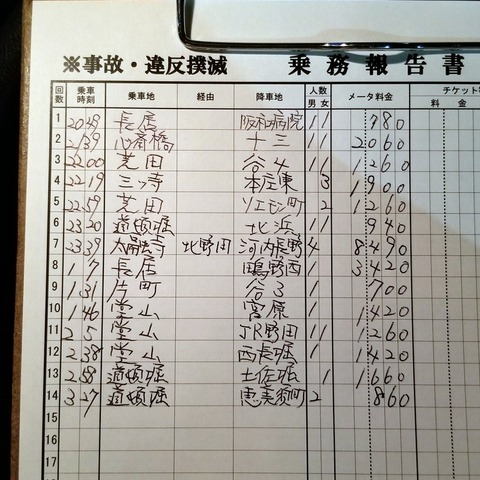 ※事故・違反撲滅 乗務報告書
回数 乗車時刻 乗車地 経由 降車地 人数 男 女 メータ料金 チケット 料金
1 2029 長居 阪和病院 1 1 780
2 2139 心斎橋 十三 1 1 2060
3 2200 芝田 谷4 1 1 1260
4 2219 三ッ寺 本庄東 3 1900
5 2259 芝田 ソエモン町 2 1260
6 2320 道頓堀 北浜 1 1 940
7 2339 太融寺 北野田 河内長野 4 8490
8 1 7 長居 鴫野西 1 3420
9 1 31 片町 谷3 1 700
10 1 46 堂山 宮原 1 1420
11 2 5 堂山 JR野田 1 1 1260
12 2 38 堂山 西長堀 1 1420
13 2 58 道頓堀 土佐堀 1 1660
14 3 27 道頓堀 恵美須町 2 860
15
16
17